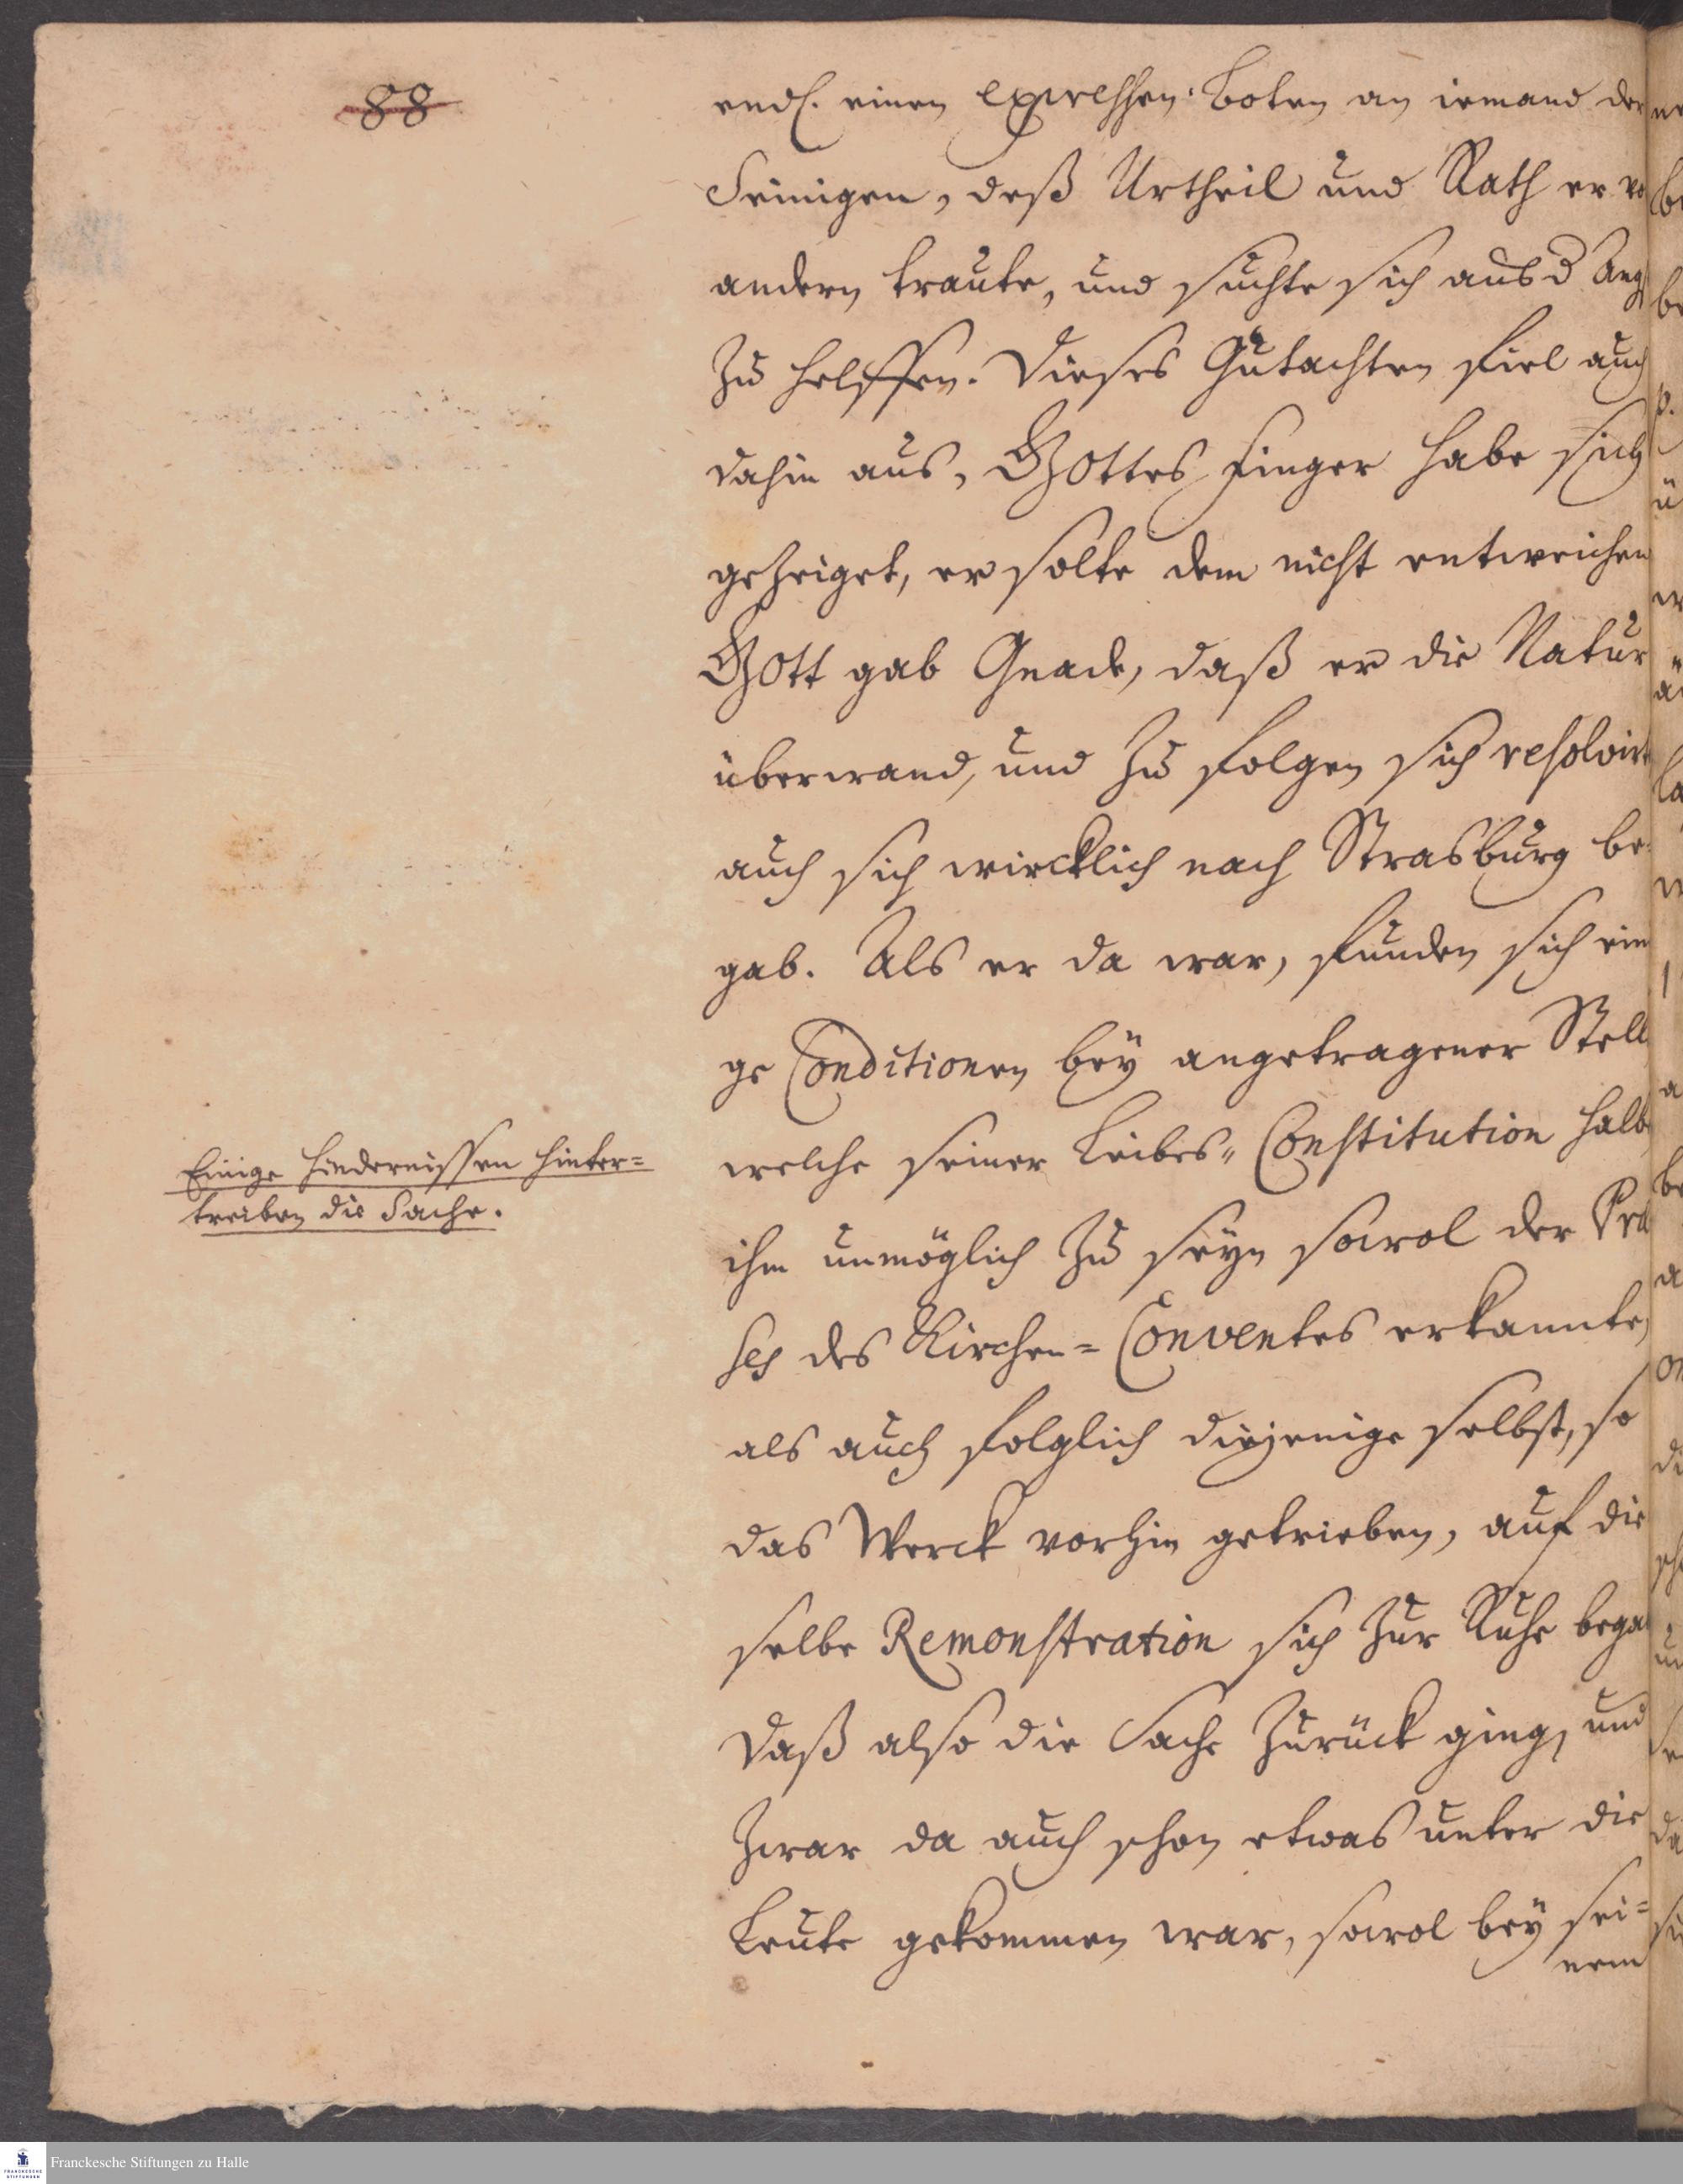 88
endl. einen expressen Boten an iemand der
Seinigen, deß Urtheil und Rath er vo
andern traute, und suchte sich aus d Ang
zu helffen. Dieses Gutachten fiel auch
dahin aus, GOttes Finger habe sich
gezeiget, er solte dem nicht entweichen
GOtt gab Gnade, daß er die Natur
überwand, und zu folgen sich resolvirt
auch sich wircklich nach Strasburg be-
gab. Als er da war, funden sich eini
ge Conditionen bey angetragener Stell
welche seiner Leibes-Constitution halb
ihm unmöglich zu seyn sowol der Præ
ses des Kirchen=Conventes erkannte,
als auch folglich diejenige selbst, so
das Werck vorhin getrieben, auf die
selbe Remonstration sich zur Ruhe bega
Daß also die Sache zurück ging, und
zwar da auch schon etwas unter die
Leute gekommen war, sowol bey sei=
nem
Einige Hindernissen hinter=
treiben die Sache.
Franckesche Stiftungen zu Halle